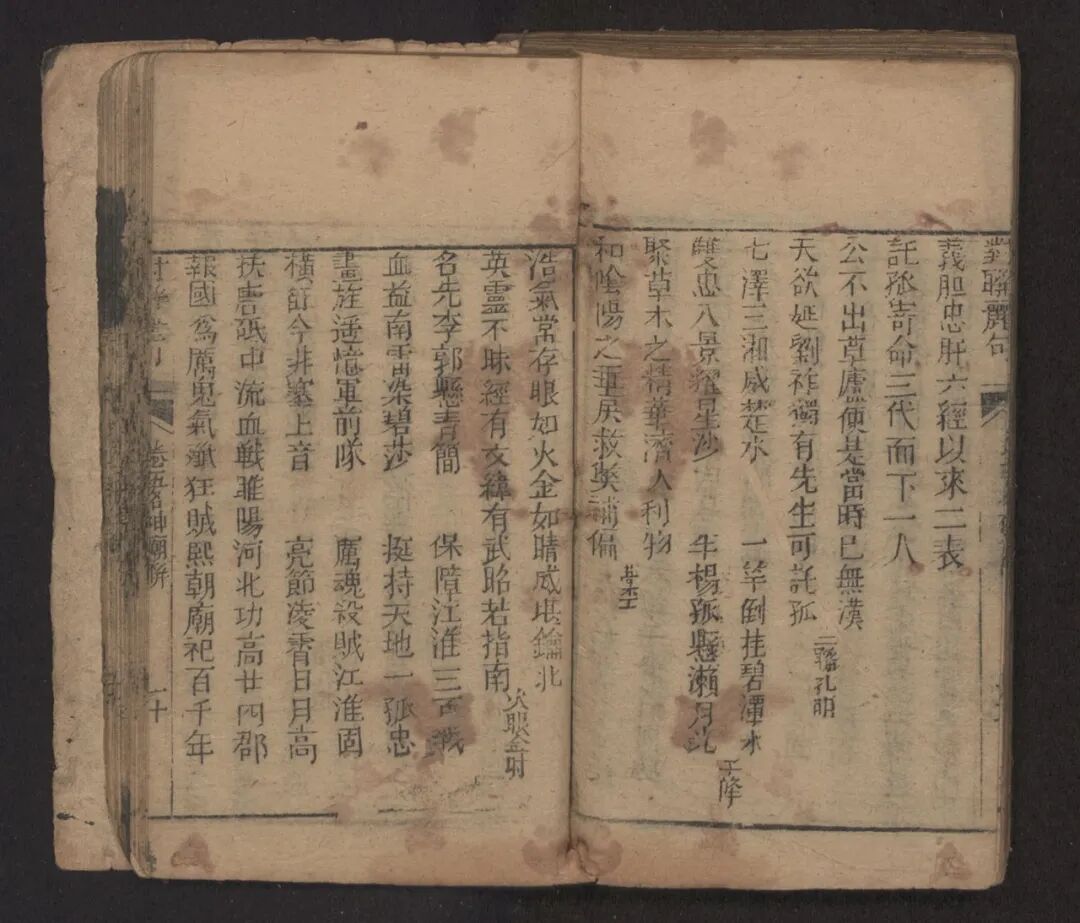 對聯麗句
義胆忠肝六經以來二表
託孤寄命三代而下一人
公不出草廬便是當時已無漢
天欲延劉祚獨有先生可託孤 二聯孔明
七澤三湘咸楚水 一竿倒挂碧潭水
雙忠八景耀星沙 半楊孤懸瀬月
聚草木之精華濟人利物
和陰陽之 居救 補偏
浩氣常存眼如火金如睛威堪鑰北
英靈不昧經有文緯有武昭若指南 火眼金
名先李郭懸青簡 保障江淮三百戰
血益南雷染碧莎 挺持天地一孤忠
畫旌遥憶軍前隊 厲魂殺賊江淮固
橫笛今非塞上音 亮節凌霄日月高
扶唐砥中流血戰雎陽河北功高廿四郡
報國爲厲鬼氣殲狂賊熙朝廟祀百千年
卷 神廟聯
二十